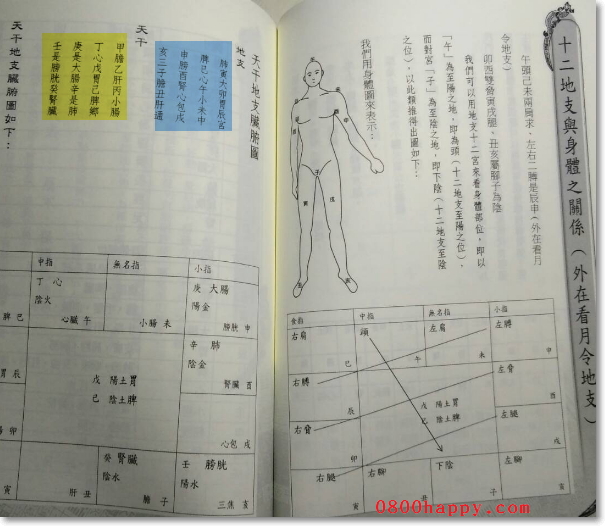 十二地支與身體之關係（外在看月令地支）
午頭巳未兩肩求，左右二膊是辰申（外在看月
令地支）
卯酉雙脅寅戌腿，丑亥屬腳子為陰
我們可以用地支十二宮來看身體部位，即以
「午」為至陽之地，即為頭（十二地支至陽之位），
而對宮「子」為至陰之地，即下陰（十二地支至陰
之位），以此類推得出圖如下：
我們用身體圖來表示：
食指 中指 無名指 小指
右肩 頭 左肩 左膊
巳 午 未 申
右膊 左脅
辰 酉
戊 陽土胃
己 陰土脾
右脅 左腿
卯 戌
右腿 右腳 下陰 左腳
寅 丑 子 亥
天干地支臟腑圖
地支
肺寅大卯胃辰宮
脾巳心午小未中
申膀酉腎心包戌
亥三子膽丑肝通
天干
甲膽乙肝丙小腸
丁心戊胃己脾鄉
庚是大腸辛是肺
壬是膀胱癸腎臟
天干地支臟腑圖如下：
中指 無名指 小指
丁 心 庚 大腸
陰火 陽金
脾 巳 心臟 午 小腸 未 膀胱 申
辛 肺
陰金
胃 辰 腎臟 酉
戊 陽土胃
己 陰土脾
卯 心包 戌
癸 腎臟 壬 膀胱
陰水 陽水
寅 肝 丑 膽 子 三焦 亥
0800happy.com